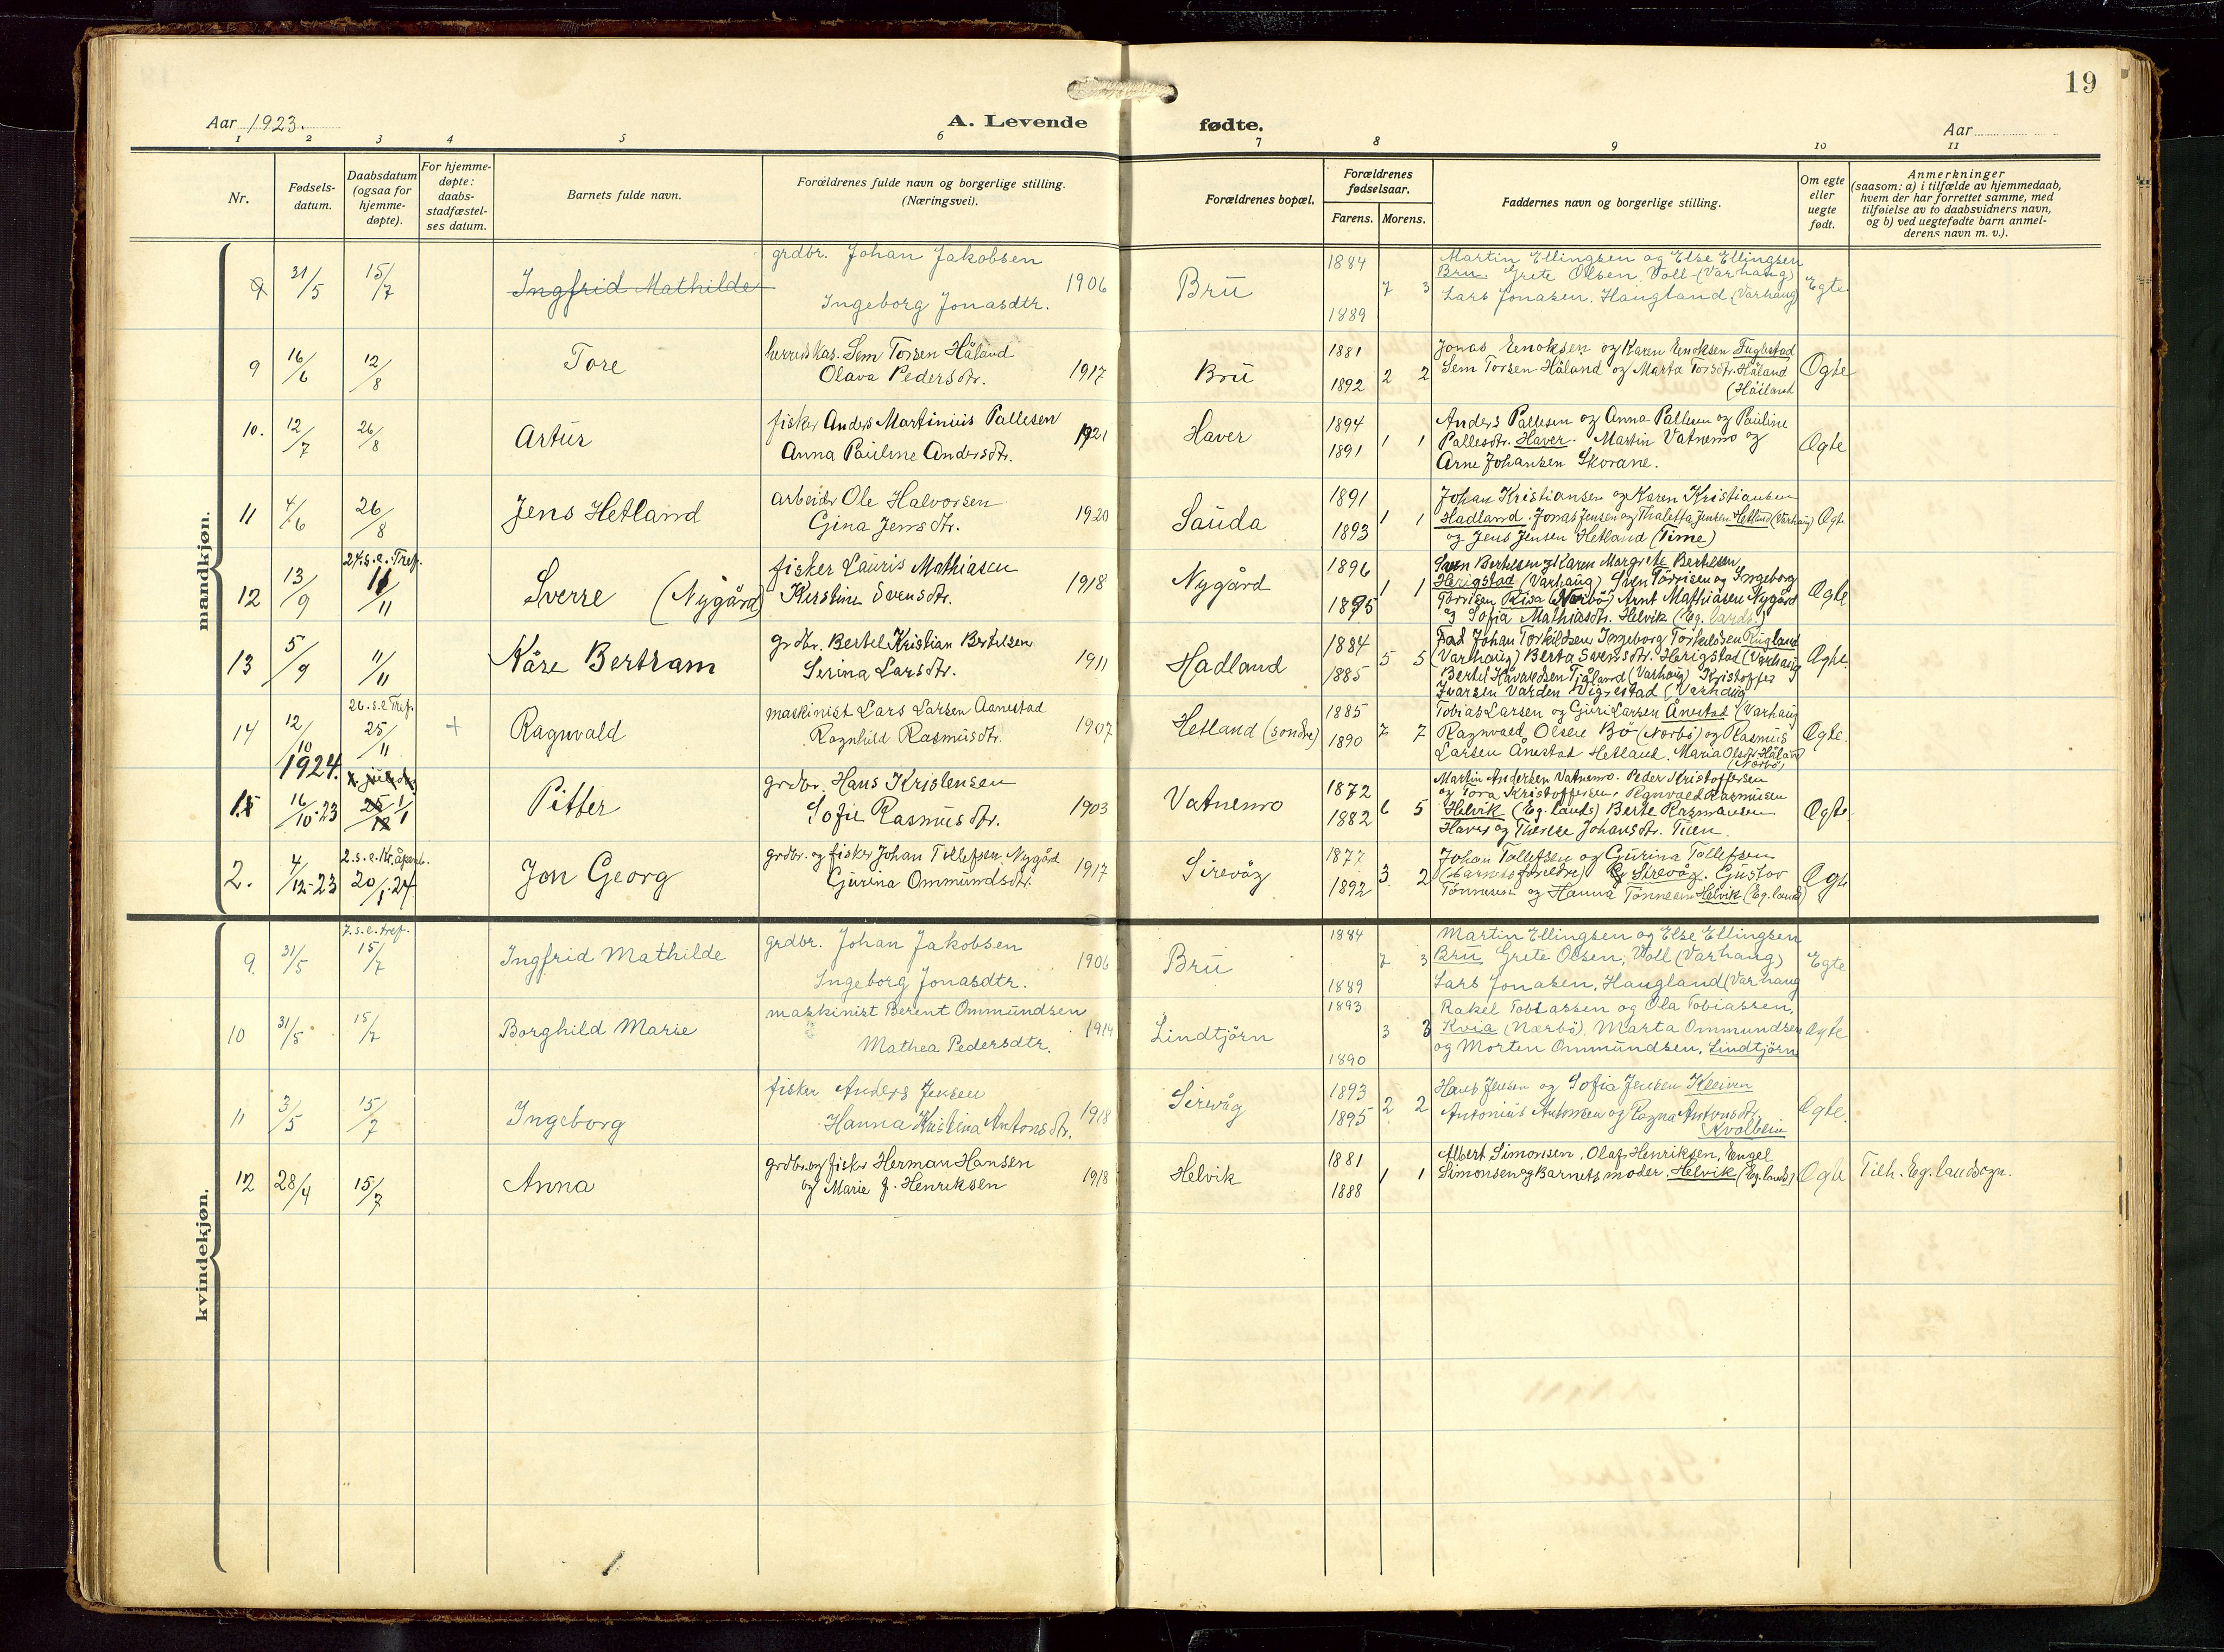 19
Aar 1923.
A. Levende fødte.
Aar
1 2 3 4 5 6 7 8 9 10 11
Nr.
Fødsels-
datum.
Daabsdatum
(ogsaa for
hjemme-
døpte).
For hjemme-
døpte:
daabs-
stadfæstel-
ses datum.
Barnets fulde navn.
Forældrenes fulde navn og borgerlige stilling.
(Næringsvei).
Forældrenes bopæl.
Forældrenes
fødselsaar.
Farens. Morens.
Faddernes navn og borgerlige stilling.
Om egte
eller
uegte
født.
Anmerkninger
(saasom: a) i tilfælde av hjemmedaab,
hvem der har forrettet samme, med
tilføielse av to daabsvidners navn,
og b) ved uegtefødte barn anmel-
derens navn m. v.).
mandkjøn.
31/5 15/7 Ingfrid Mathilde
grdbr. Johan Jakobsen
Ingeborg Jonasdtr. 1906
Bru
1884
1889
7 3
Martin Ellingsen og Else Ellingsen
Bru Grete Olsen, Voll (Varhaug)
Lars Jonasen, Haugland (Varhaug)
Egte
9 16/6 12/8 Tore
herredskas. Sem Torsen Håland
Olava Pedersdtr. 1917
Bru
1881
1892
2 2
Jonas Enoksen og Karen Enoksen Fuglestad
Sem Torsen Håland og Marta Torsdtr. Håland
(Håiland
Egte
10. 12/7 26/8 Artur
fisker Anders Martinius Pallesen
Anna Pauline Andersdtr. 1921
Haver
1894
1891
1 1
Anders Pallesen og Anna Pallesen og Pauline
Pallesdtr. Haver. Martin Vatnemo og
Arne Johansen Skorane.
Egte
11 4/6 26/8 Jens Hetland
arbeider Ole Halvorsen
Gina Jensdtr. 1920
Sauda
1891
1893
1 1
Johan Kristiansen og Karen Kristiansen
Hadland. Jonas Jensen og Thaletta Jensen Hetland (Varhaug)
og Jens Jensen Hetland (Time)
Egte
24. s. e. Tref.
12 13/9 11/11 Sverre (Nygård)
fisker Lauris Mathiasen
Kirstine Svensdtr. 1918
Nygård
1896
1895
1 1
Sven Bertelsen og Karen Margrete Bertelsen
Herigstad (Varhaug) Sven Torrisen og Ingeborg
Torrisen Risa (Nærbö) Arnt Mathiasen Nygård
og Sofia Mathiasdtr. Helvik (Eg. lands.)
Egte
13 5/9 11/11 Kåre Bertram
grdbr. Bertel Kristian Bertelsen
Serina Larsdtr. 1911
Hadland
1884
1885
5 5
Johan Torkildsen Ingeborg Torkildsen Rugland
(Varhaug) Berta Svensdtr. Herigstad (Varhaug
Bertel Håvaldsen Tjåland (Varhaug) Kristoffer
Ivarsen Varden Vigrestad (Varhaug
Egte.
26. s. e. Tref.
14 12/10 25/11 + Ragnvald
maskinist Lars Larsen Aanestad
Ragnhild Rasmusdtr. 1907
Hetland (søndre)
1885
1890
7 7
Tobias Larsen og Guri Larsen Ånestad (Varhaug
Ragnvald Olsen Bö (Nærbö) og Rasmus
Larsen Ånestad Hetland. Maria Olsdtr. Håland
(Nærbö)
Egte.
1924.
1. 16/10-23 1/1 Pitter
grdbr. Hans Kristensen
Sofie Rasmusdtr. 1903
Vatnemo
1872
1882
6 5
Martin Andersen Vatnemo. Peder Kristoffersen
og Tora Kristoffersen. Ragnvald Rasmusen
Helvik (Eg. lands) Berte Rasmussen
Haver og Therese Johansdtr. Tuen.
Egte
2. s. e. Kr. åpenb.
2. 4/12-23 20/1-24. Jon Georg
grdbr. og fisker Johan Tollefsen Nygård
Gurina Ommundsdtr. 1917
Sirevåg
1877
1892
3 2
Johan Tollefsen og Gurina Tollefsen
(Barnets foreldre) Sirevåg. Gustav
Tönnesen og Hanna Tönnesen Helvik (Eg. lands)
Egte
kvindekjøn.
7. s. e. tref.
9. 31/5 15/7 Ingfrid Mathilde
grdbr. Johan Jakobsen
Ingeborg Jonasdtr. 1906
Bru
1884
1889
7 3
Martin Ellingsen og Else Ellingsen
Bru Grete Olsen, Voll (Varhaug)
Lars Jonasen, Haugland (Varhaug
Egte
10 31/5 15/7 Borghild Marie
maskinist Berent Ommundsen
Mathea Pedersdtr. 1914
Lindtjörn
1893
1890
3 3
Rakel Tobiassen og Ola Tobiassen,
Kvia (Nærbö), Marta Ommundsen
og Morten Ommundsen, Lindtjörn
Egte
11 3/5 15/7 Ingeborg
fisker Anders Jensen
Hanna Kristina Antonsdtr. 1918
Sirevåg
1893
1895
2 2
Hans Jensen og Sofia Jensen Kleiven
Antonius Antonsen og Ragna Antonsdtr.
Kvalbein
Egte.
12 28/4 15/7 Anna
grdbr. og fisker Herman Hansen
og Marie J. Henriksen 1918
Helvik
1881
1888
1 1
Albert Simonsen, Olaf Henriksen, Engel
Simonsen og Barnets moder, Helvik (Eg. lands)
Egte
Tilh. Eg. landsogn.